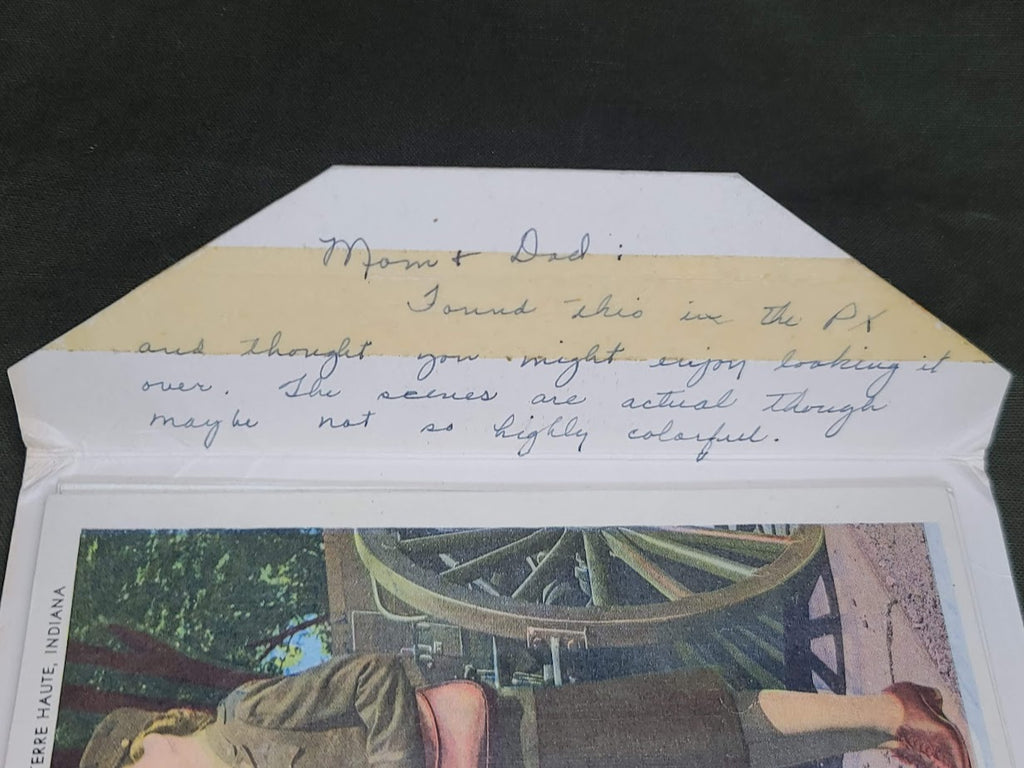 Mom & Dad:
Found this in the PX
and thought you might enjoy looking it
over. The scenes are actual though
maybe not so highly colorful.
TERRE HAUTE, INDIANA